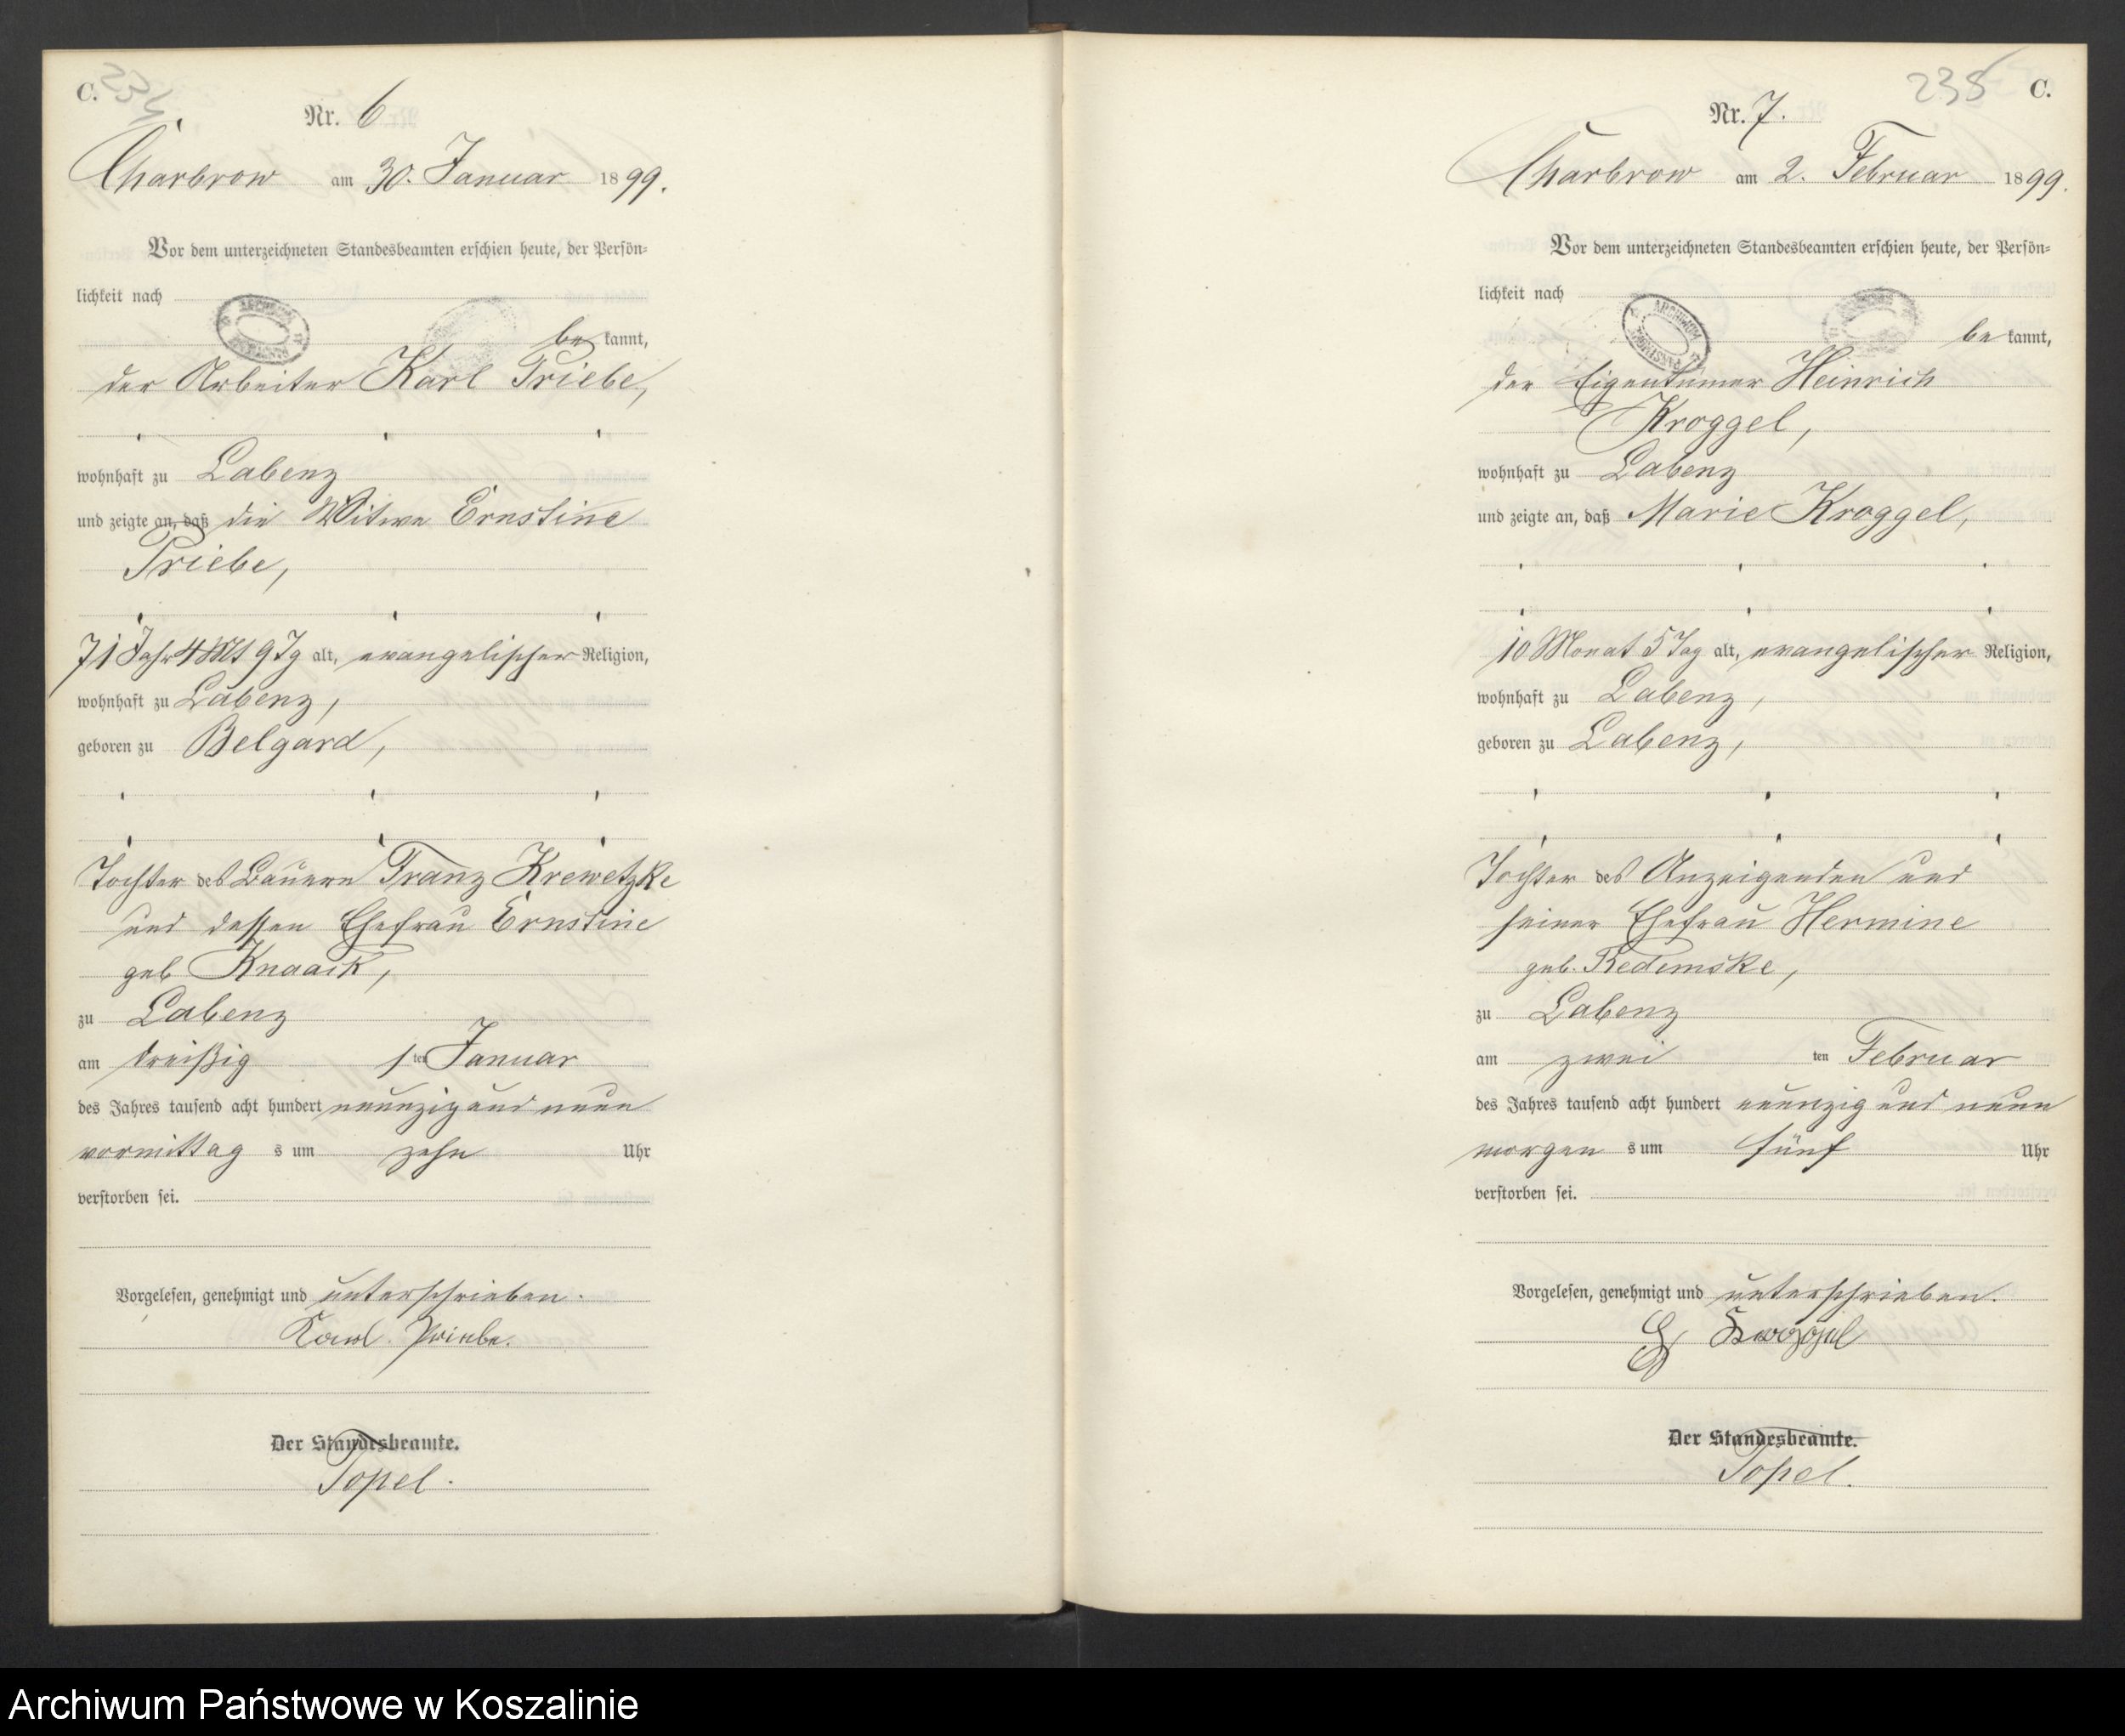 C.
234
Nr. 6
Charbrow am 30. Januar 1899.
Vor dem unterzeichneten Standesbeamten erschien heute, der Persön-
lichkeit nach
be kannt,
der Arbeiter Karl Priebe,
wohnhaft zu Labenz
und zeigte an, daß die Witwe Ernstine
Priebe,
71 Jahr 4 Mt 9 Tg alt, evangelischer Religion,
wohnhaft zu Labenz,
geboren zu Belgard,
Tochter des Bauern Franz Krewetzke
und dessen Ehefrau Ernstine
geb Knaack,
zu Labenz
am dreißig sten Januar
des Jahres tausend acht hundert neunzig und neun
vormittag s um zehn Uhr
verstorben sei.
Vorgelesen, genehmigt und unterschrieben.
Karl Priebe.
Der Standesbeamte.
Topel.
235
C.
Nr. 7.
Charbrow am 2. Februar 1899.
Vor dem unterzeichneten Standesbeamten erschien heute, der Persön-
lichkeit nach
be kannt,
der Eigentümer Heinrich
Kroggel,
wohnhaft zu Labenz
und zeigte an, daß Marie Kroggel,
10 Monat 5 Tag alt, evangelischer Religion,
wohnhaft zu Labenz,
geboren zu Labenz,
Tochter des Anzeigenden und
seiner Ehefrau Hermine
geb. Redemske,
zu Labenz
am zwei ten Februar
des Jahres tausend acht hundert neunzig und neun
morgen s um fünf Uhr
verstorben sei.
Vorgelesen, genehmigt und unterschrieben.
H Kroggel
Der Standesbeamte.
Topel.
Archiwum Państwowe w Koszalinie